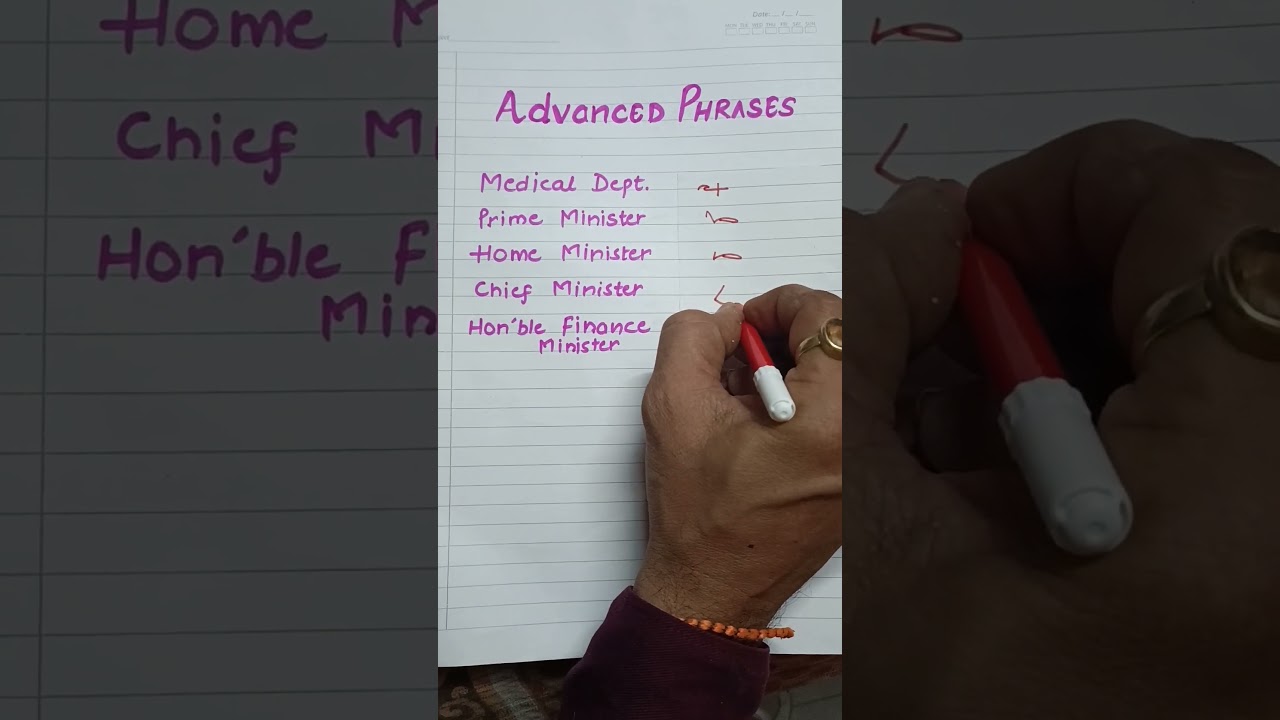 Date: __ / __ / ____
MON TUE WED THU FRI SAT SUN
Advanced Phrases
Medical Dept.
Prime Minister
Home Minister
Chief Minister
Hon'ble Finance
Minister
Home M
Chief Mi
Hon'ble F
Min